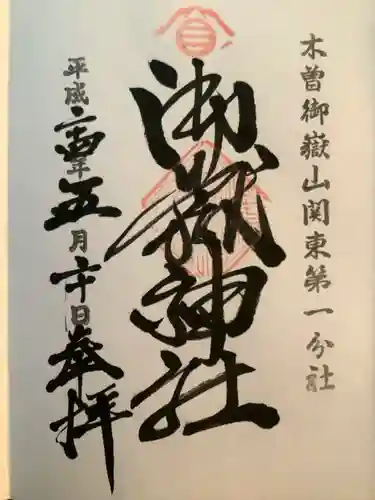 木曽御嶽山関東第一分社
御嶽神社
平成二十四年五月六日奉拝